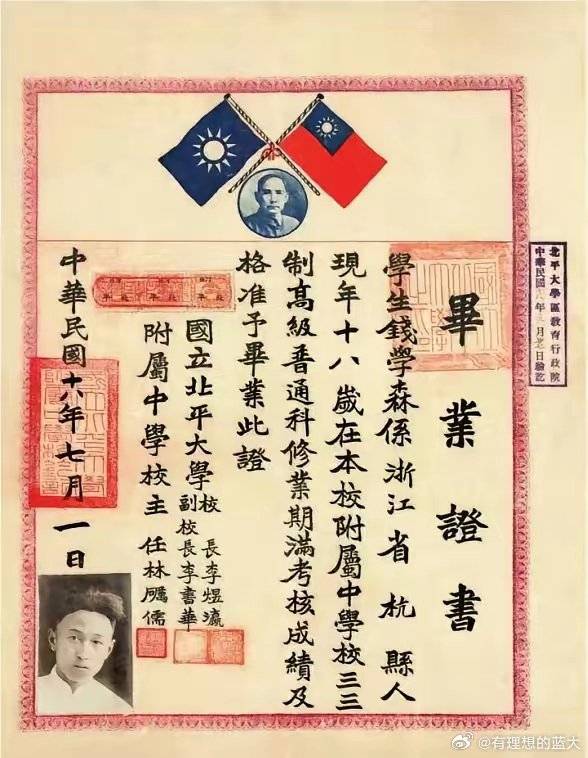 畢業證書
學生錢學森係浙江省杭縣人
現年十八歲在本校附屬中學校三三
制高級普通科修業期滿考核成績及
格准予畢業此證
國立北平大學校長李煜瀛
副校長李書華
附屬中學校主任林礪儒
中華民國十八年七月一日
北平大學區教育行政院
中華民國年月日驗訖
@有理想的蓝大